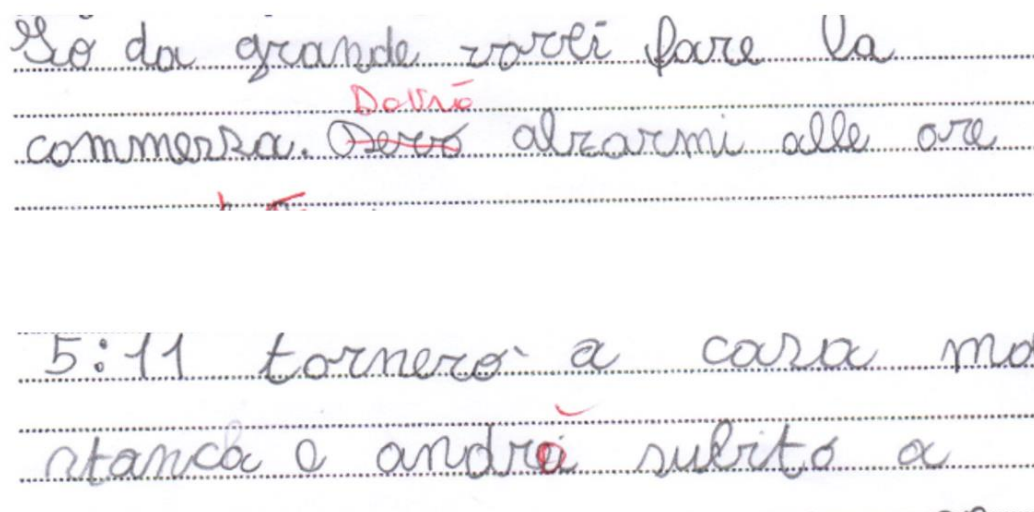 Io da grande vorrei fare la
Dovrò
commessa. Devo alzarmi alle ore
5:11 tornerò a casa mo
stanca e andrò subito a